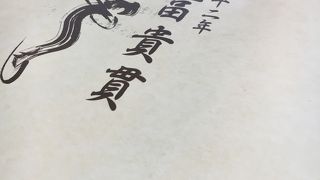 十二年
富貴貫